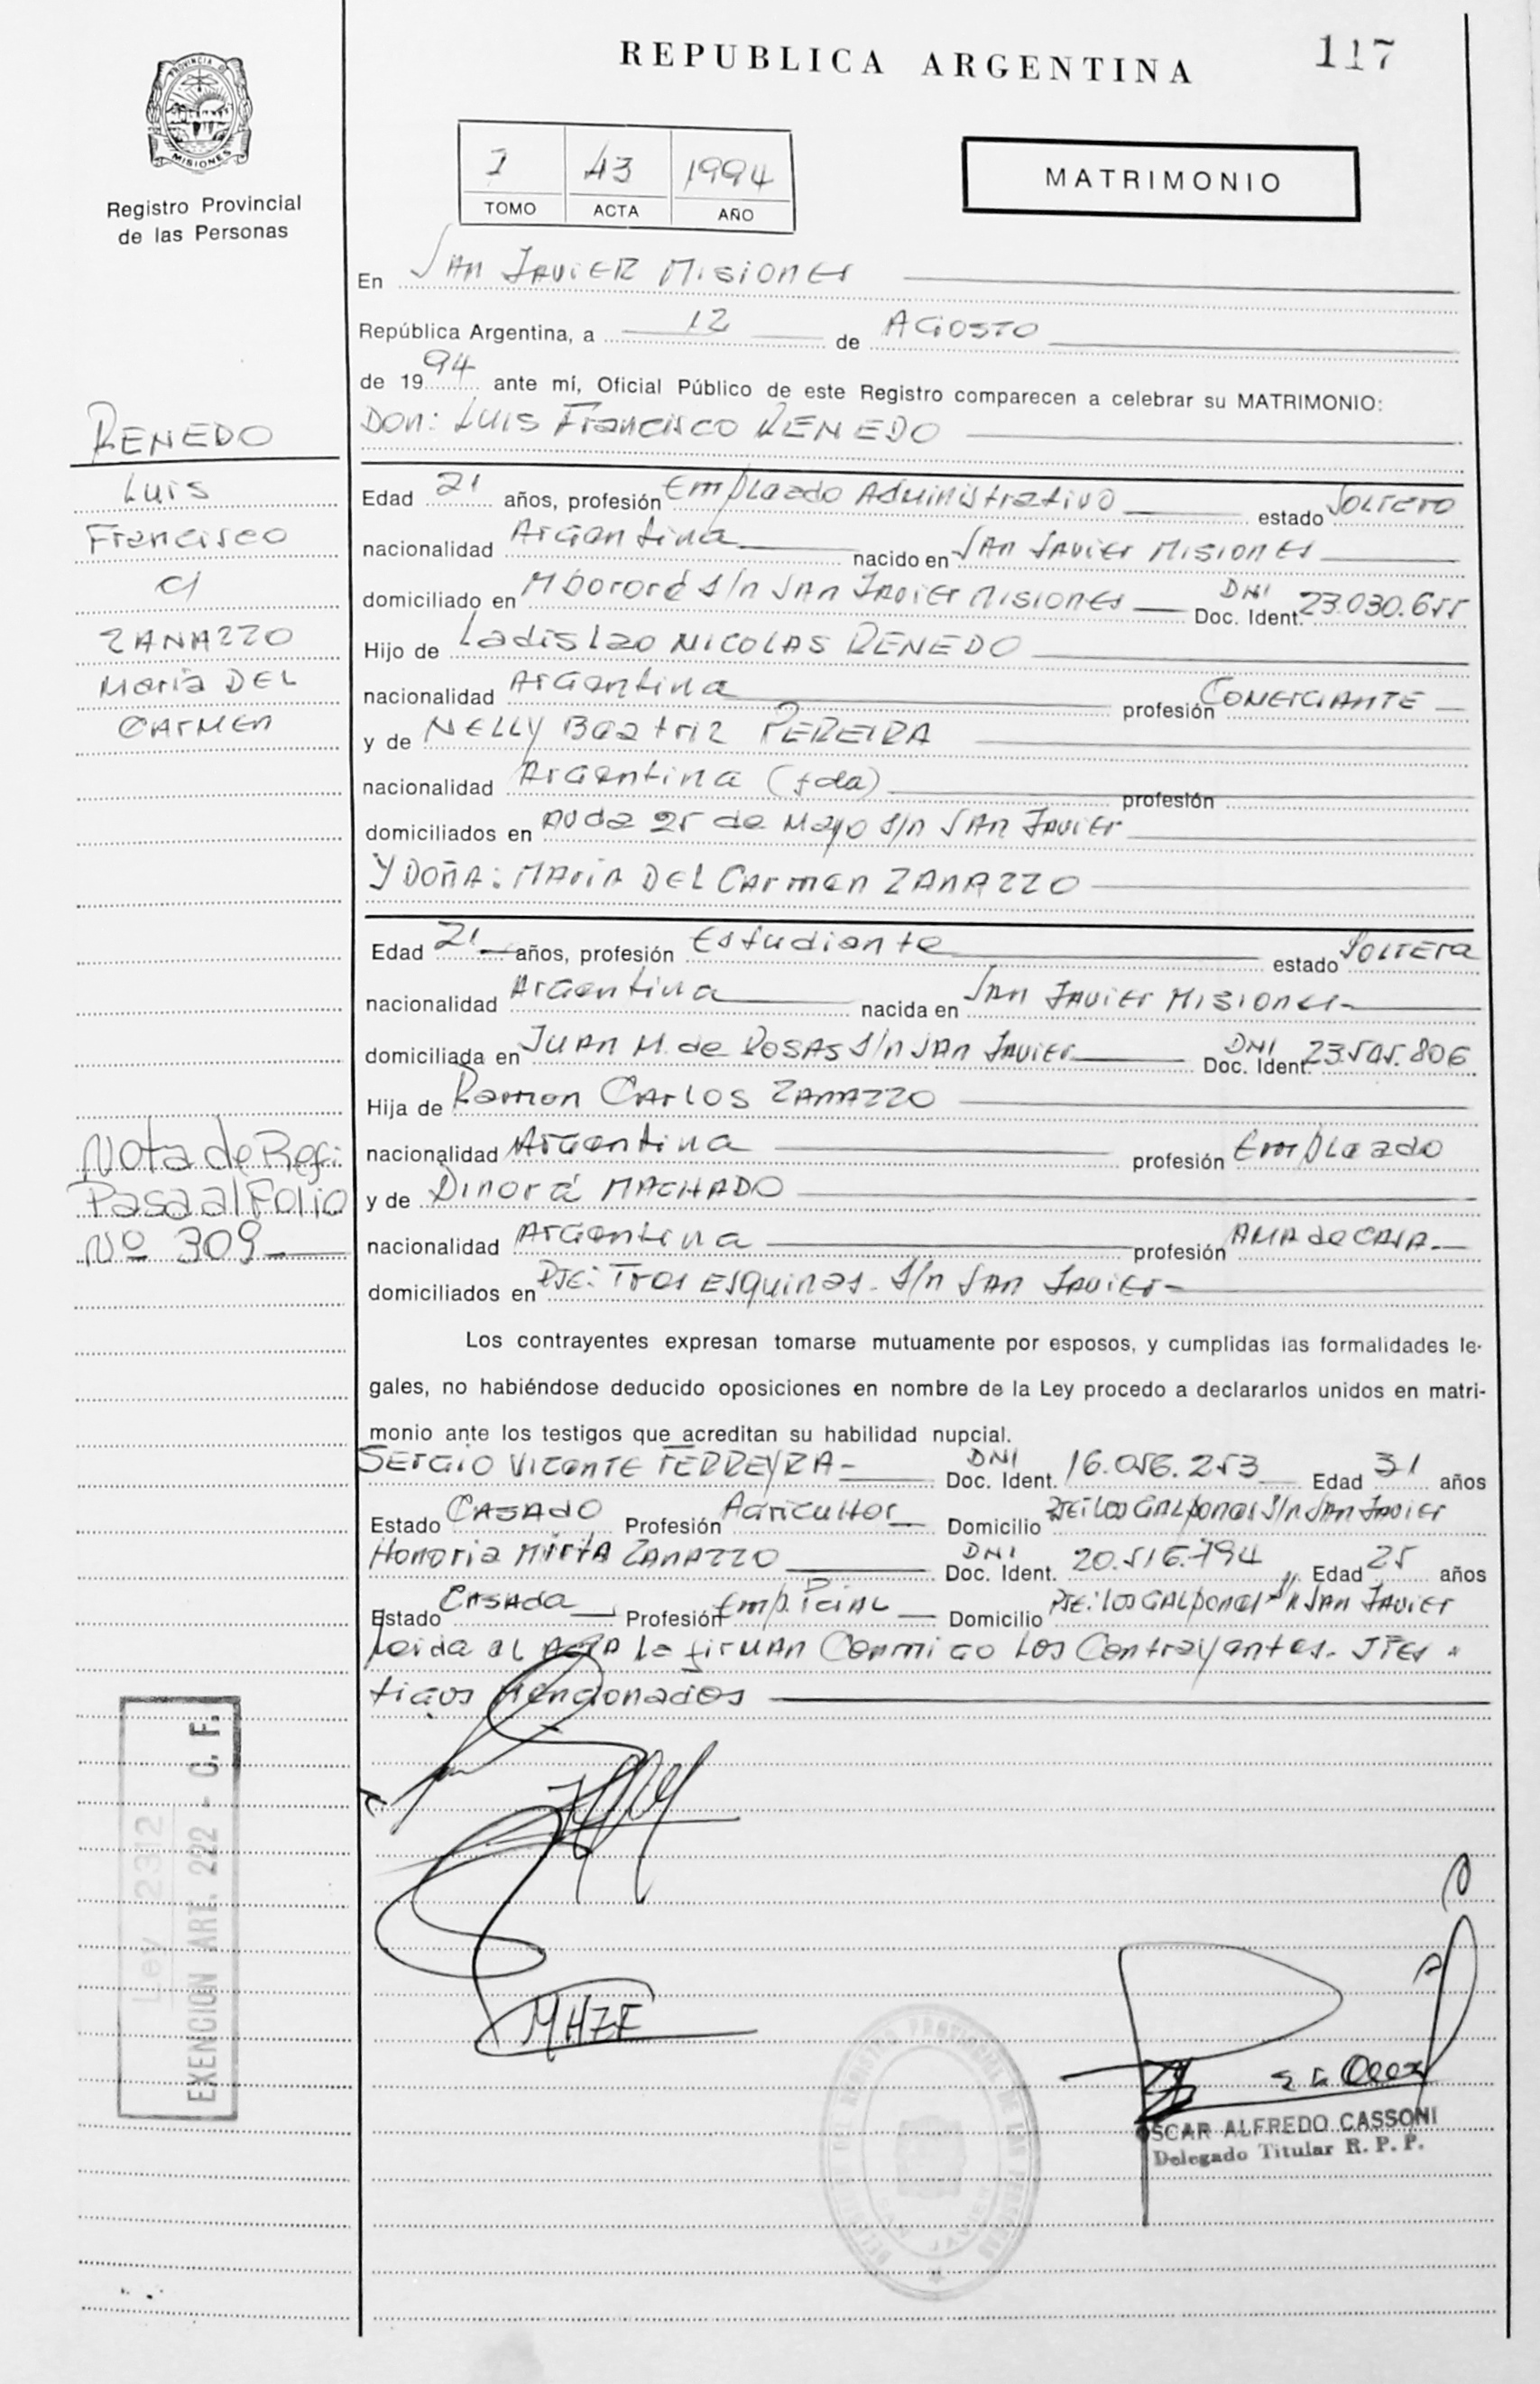 REPUBLICA ARGENTINA
117
PROVINCIA D
MISIONES
Registro Provincial
de las Personas
1 43 1994
TOMO ACTA AÑO
MATRIMONIO
En SAN JAVIER MISIONES
República Argentina, a 12 de AGOSTO
de 1994 ante mí, Oficial Público de este Registro comparecen a celebrar su MATRIMONIO:
Don: Luis Francisco RENEDO
Edad 21 años, profesión Empleado Administrativo estado Soltero
nacionalidad Argentina nacido en San Javier Misiones
domiciliado en Mbororé s/n San Javier Misiones DNI Doc. Ident. 23.030.655
Hijo de Ladislao NICOLAS RENEDO
nacionalidad Argentina profesión COMERCIANTE
y de NELLY Beatriz PEREIRA
nacionalidad Argentina (fda) profesión
domiciliados en Avda 25 de Mayo s/n San Javier
Y DOÑA: MARIA DEL CARMEN ZANAZZO
Edad 21 años, profesión Estudiante estado Soltera
nacionalidad Argentina nacida en San Javier Misiones
domiciliada en Juan M. de Rosas s/n San Javier DNI Doc. Ident. 23.545.806
Hija de Ramon Carlos ZANAZZO
nacionalidad Argentina profesión Empleado
y de Dinorá MACHADO
nacionalidad Argentina profesión AMA de CASA
domiciliados en Pje: Tres Esquinas - s/n San Javier
Los contrayentes expresan tomarse mutuamente por esposos, y cumplidas las formalidades le-
gales, no habiéndose deducido oposiciones en nombre de la Ley procedo a declararlos unidos en matri-
monio ante los testigos que acreditan su habilidad nupcial.
SERGIO VICENTE FERREYRA- DNI Doc. Ident. 16.056.253 Edad 31 años
Estado CASADO Profesión Agricultor Domicilio Pje: Los Galpones s/n San Javier
Honoria Mirta ZANAZZO DNI Doc. Ident. 20.516.794 Edad 25 años
Estado Casada Profesión Emp. Domicilio Pje: Los Galpones s/n San Javier
Leida el Acta la firman Conmigo Los Contrayentes. y Tes-
tigos Mencionados
RENEDO
Luis
Francisco
c/
ZANAZZO
María DEL
CARMEN
Nota de Ref:
Pasa al Folio
Nº 309
Ley 2312
EXENCION ART. 222 - C. F.
MHZF
OSCAR ALFREDO CASSONI
Delegado Titular R. P. P.